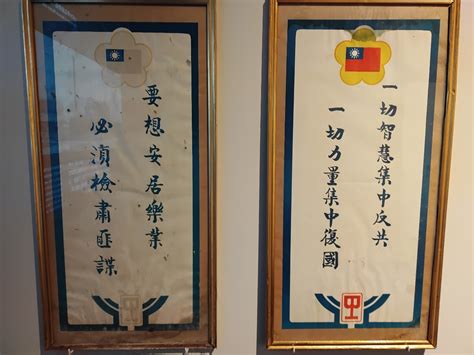 要想安居樂業
必湏檢肅匪諜
一切智慧集中反共
一切力量集中復國